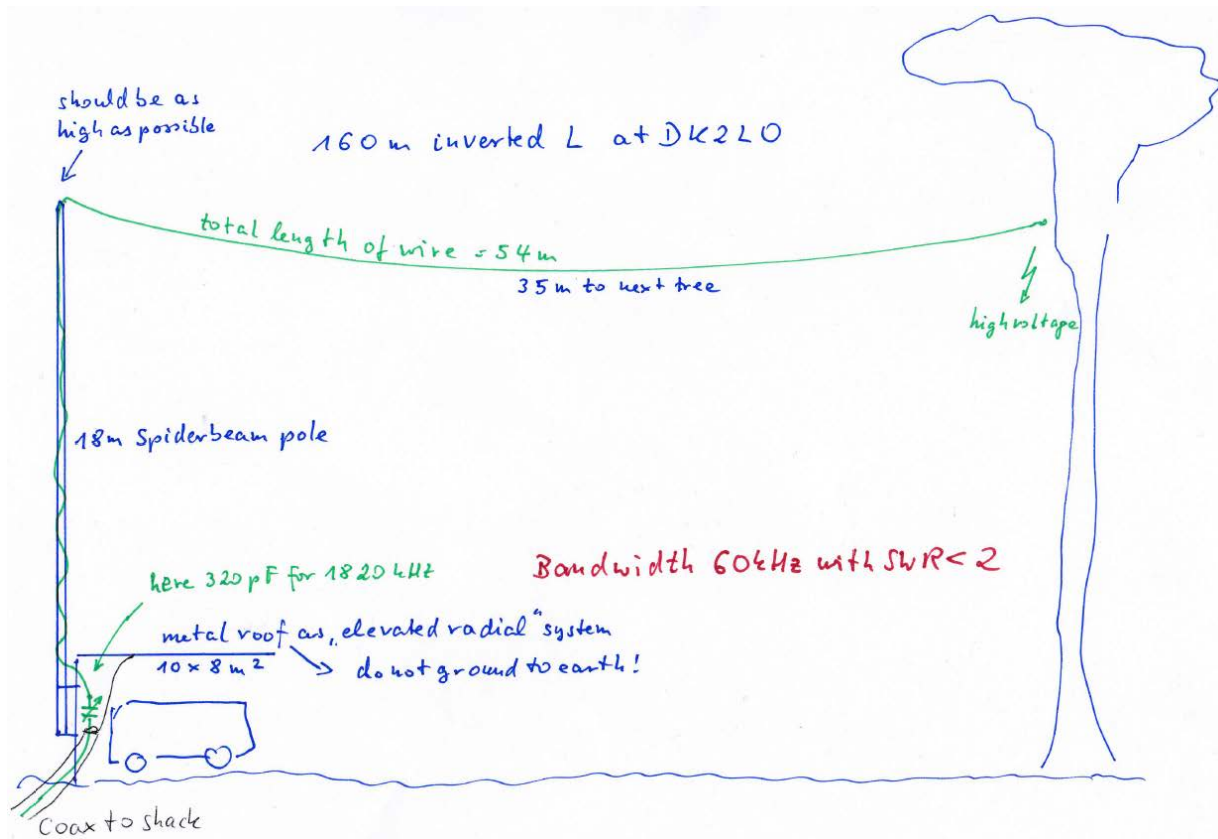 should be as
high as possible
160m inverted L at DK2LO
total length of wire = 54m
35m to next tree
high voltage
18m Spiderbeam pole
here 320pF for 1820kHz
Bandwidth 60kHz with SWR<2
metal roof as „elevated radial“ system
10 x 8 m²
do not ground to earth!
Coax to shack